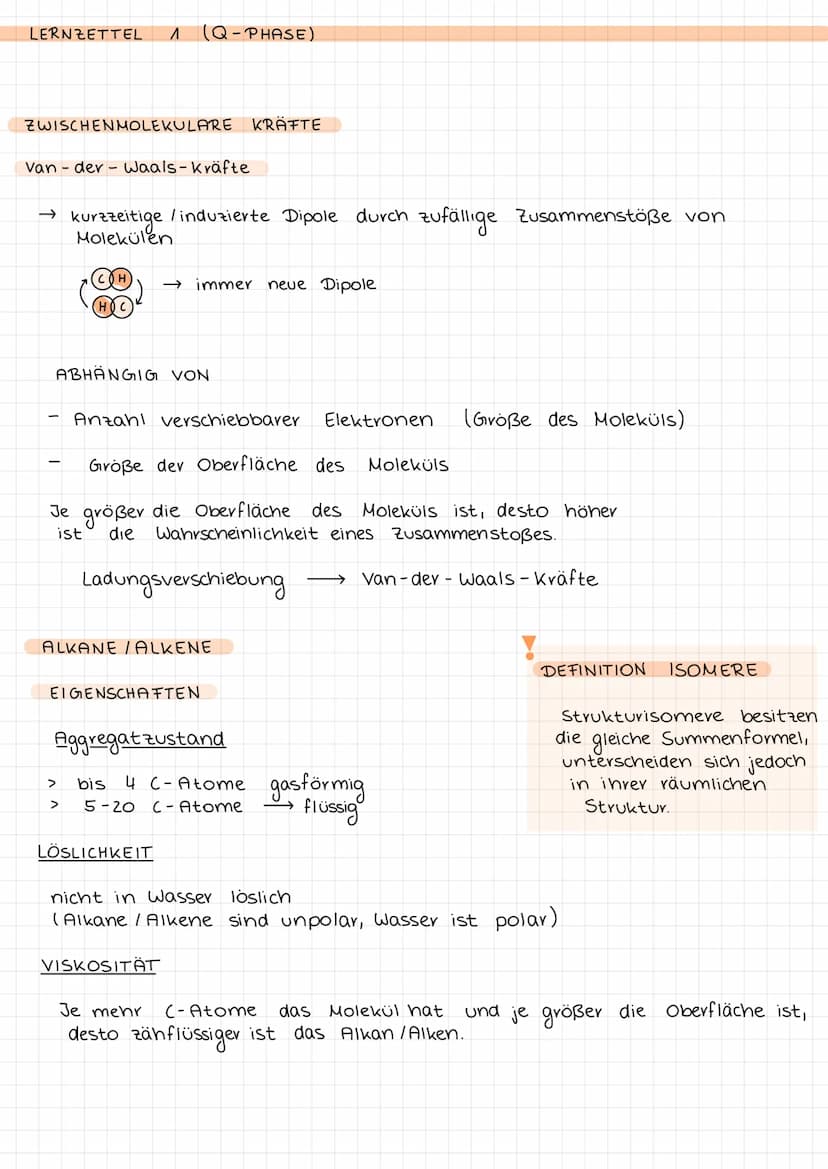 LERNZETTEL 1 (Q-PHASE)
ZWISCHENMOLEKULARE KRÄFTE
Van-der-Waals-Kräfte
→ kurzzeitige/induzierte Dipole durch zufällige Zusammenstöße von
Molekülen
C H
H C
→ immer neue Dipole
ABHÄNGIG VON
- Anzahl verschiebbarer Elektronen (Größe des Moleküls)
- Größe der Oberfläche des Moleküls
Je größer die Oberfläche des Moleküls ist, desto höher
ist die Wahrscheinlichkeit eines Zusammenstoßes.
Ladungsverschiebung → Van-der-Waals-Kräfte
ALKANE/ALKENE
EIGENSCHAFTEN
Aggregatzustand
> bis 4 C-Atome gasförmig
> 5-20 C-Atome → flüssig
!
DEFINITION ISOMERE
Strukturisomere besitzen
die gleiche Summenformel,
unterscheiden sich jedoch
in ihrer räumlichen
Struktur.
LÖSLICHKEIT
nicht in Wasser löslich
(Alkane/Alkene sind unpolar, Wasser ist polar)
VISKOSITÄT
Je mehr C-Atome das Molekül hat und je größer die Oberfläche ist,
desto zähflüssiger ist das Alkan/Alken.